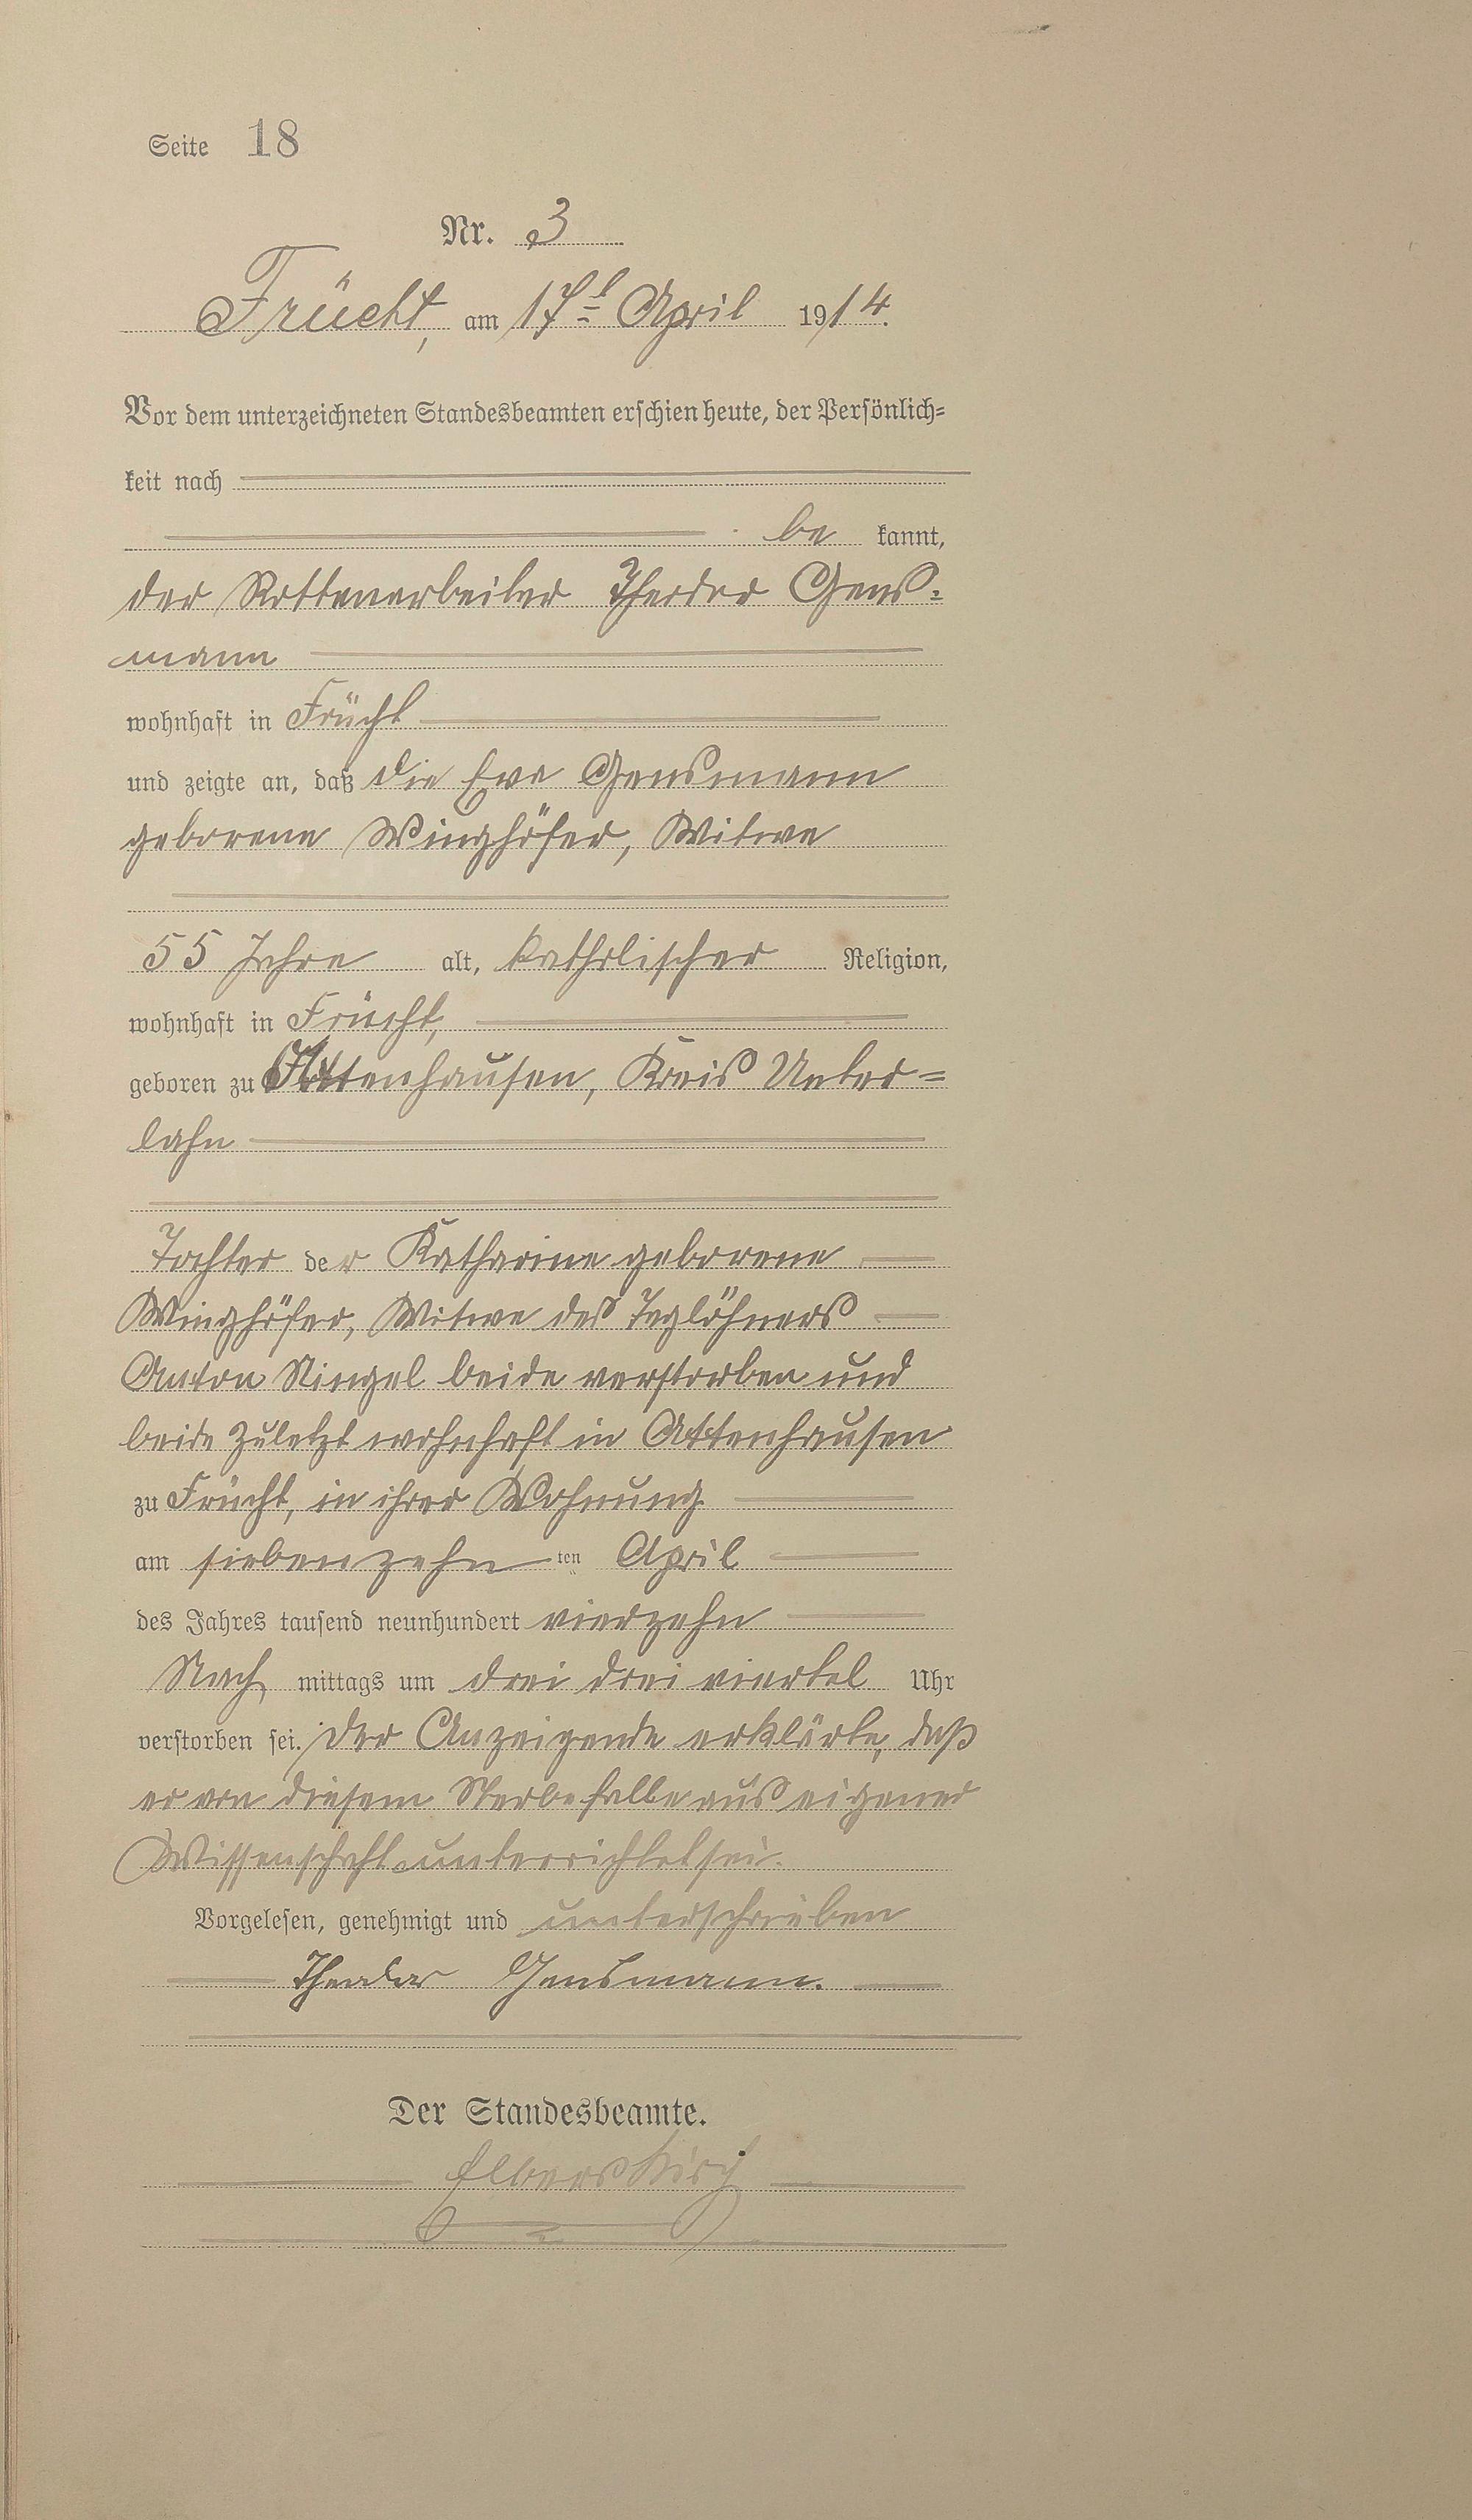 Seite 18
Nr. 3
Frücht, am 17t April 1914.
Vor dem unterzeichneten Standesbeamten erschien heute, der Persönlich-
keit nach
be kannt,
der Rottenarbeiter Theodor Gens-
mann
wohnhaft in Frücht
und zeigte an, daß die Eva Gensmann
geborene Winghöfer, Witwe
55 Jahre alt, katholischer Religion,
wohnhaft in Frücht,
geboren zu Attenhausen, Kreis Unter-
lahn
Tochter der Katharine geborene
Winghöfer, Witwe des Taglöhners
Anton beide verstorben und
beide zuletzt wohnhaft in Attenhausen
zu Frücht, in ihrer Wohnung
am siebenzehn ten April
des Jahres tausend neunhundert vierzehn
Nach mittags um drei drei viertel Uhr
verstorben sei. Der Anzeigende erklärte, daß
er von diesem Sterbefalle aus eigener
Wissenschaft unterrichtet sei.
Vorgelesen, genehmigt und unterschrieben
Theodor Gensmann.
Der Standesbeamte.
Elberskirch